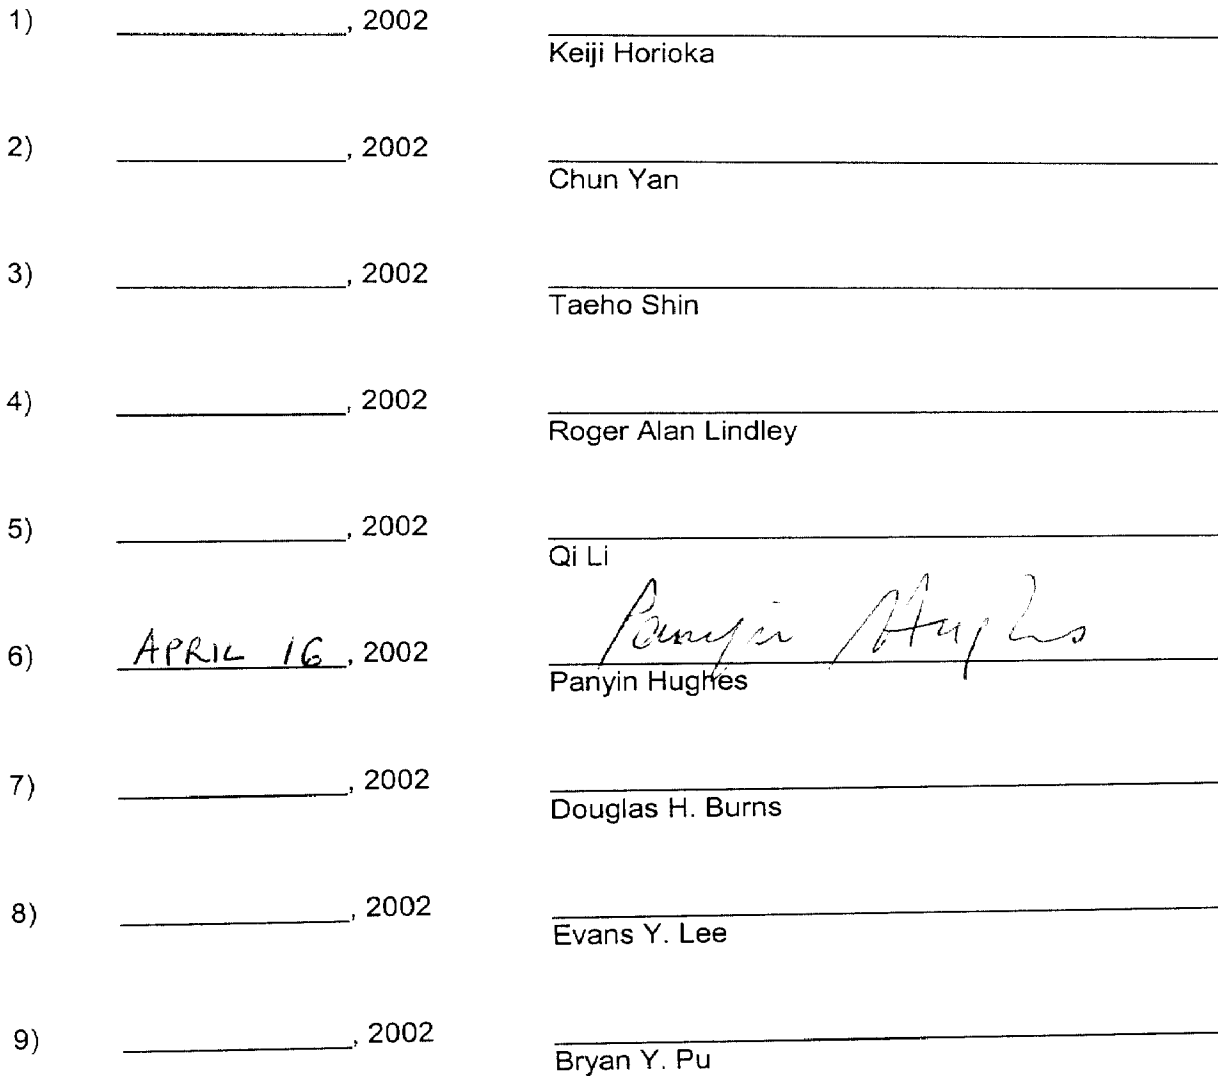 1) ____________, 2002 ____________
Keiji Horioka
2) ____________, 2002 ____________
Chun Yan
3) ____________, 2002 ____________
Taeho Shin
4) ____________, 2002 ____________
Roger Alan Lindley
5) ____________, 2002 ____________
Qi Li
6) APRIL 16, 2002 Panyin Hughes
Panyin Hughes
7) ____________, 2002 ____________
Douglas H. Burns
8) ____________, 2002 ____________
Evans Y. Lee
9) ____________, 2002 ____________
Bryan Y. Pu